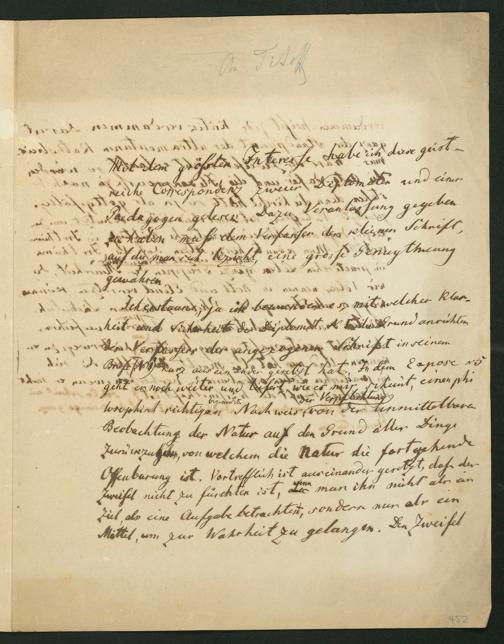 An Tissoff
Mit dem größten Interesse habe ich diese geist-
reiche Correspondenz zweier Diplomaten und eines
Pädagogen gelesen. Dazu Veranlassung gegeben
zu haben muß dem Verfasser der kleinen Schrift,
auf die man sich bezieht, eine große Genugthuung
gewähren.
ja ich bewundere es, mit welcher Klar-
heit und Sicherheit der Diplomat den Grund ansichten
des Verfassers der angezogenen Schrift in seinem
Brief auseinander gesetzt hat. In dem Expose No 5
geht er noch weiter und liefert, wie es mir scheint einen phi
losophisch richtigen Nachweis, von der unmittelbaren
der Verpflichtung
Beobachtung der Natur auf den Grund aller Dinge
zurückzugehen, von welchem die Natur die fortgehende
Offenbarung ist. Vortrefflich ist auseinander gesetzt, daß der
Zweifel nicht zu fürchten ist, wenn man ihn nicht als ein
Ziel, als eine Aufgabe betrachtet, sondern nur als ein
Mittel, um zur Wahrheit zu gelangen. Den Zweifel
452